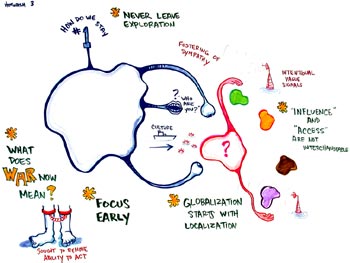 HOW DO WE STAY
#1
NEVER LEAVE
EXPLORATION
FOSTERING OF
SYMPATHY
INTENTIONAL
SIGNALS
?
WHO
ARE
YOU?
CULTURE
?
"INFLUENCE"
AND
"ACCESS"
ARE NOT
INTERCHANGEABLE
WHAT
DOES
WAR NOW
MEAN?
FOCUS
EARLY
GLOBALIZATION
STARTS WITH
LOCALIZATION
SOUGHT TO REMOVE
ABILITY TO ACT